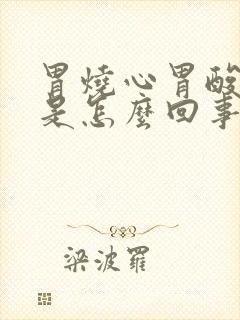 胃燒心胃酸
是怎麼回事
梁波羅